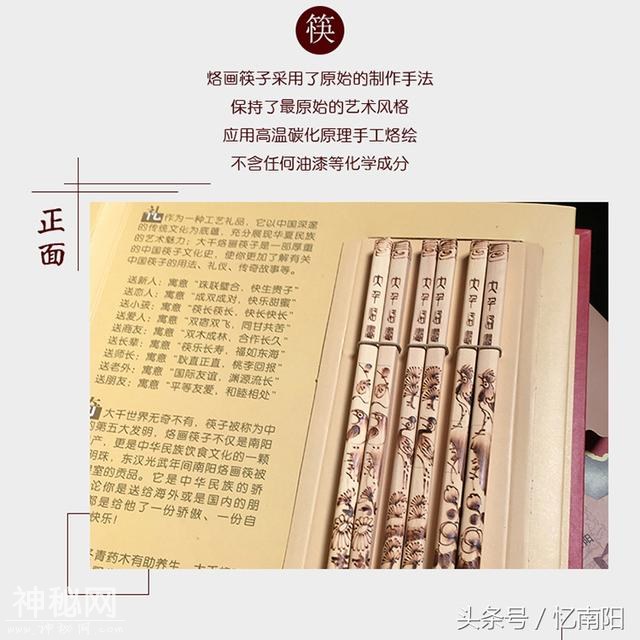 筷
烙画筷子采用了原始的制作手法
保持了最原始的艺术风格
应用高温碳化原理手工烙绘
不含任何油漆等化学成分
正面
礼作为一种工艺礼品，它以中国深邃
的传统文化为底蕴，充分展现华夏民族
的艺术魅力；大千烙画筷子是一部厚重
的中国筷子文化史，使你更加了解有关
中国筷子的用法、礼仪、传奇故事等。
送新人：寓意“珠联璧合，快生贵子”
送恋人：寓意“成双成对，快乐甜蜜”
送小孩：寓意“筷长筷长，快长快长”
送爱人：寓意“双宿双飞，同甘共苦”
送商友：寓意“双木成林，合作长久”
送长辈：寓意“筷乐长寿，福如东海”
送师长：寓意“耿直正直，桃李回报”
送老外：寓意“国际友谊，渊源流长”
送朋友：寓意“平等友爱，和睦相处”
大千世界无奇不有，筷子被称为中
的第五大发明，烙画筷子不仅是南阳
产，更是中华民族饮食文化的一颗
明珠，东汉光武年间南阳烙画筷被
室的贡品。它是中华民族的骄
论你是送给海外或是国内的朋
都是给他了一份骄傲、一份自
快乐！
冬青药木有助养生
神秘网
头条号 / 忆南阳